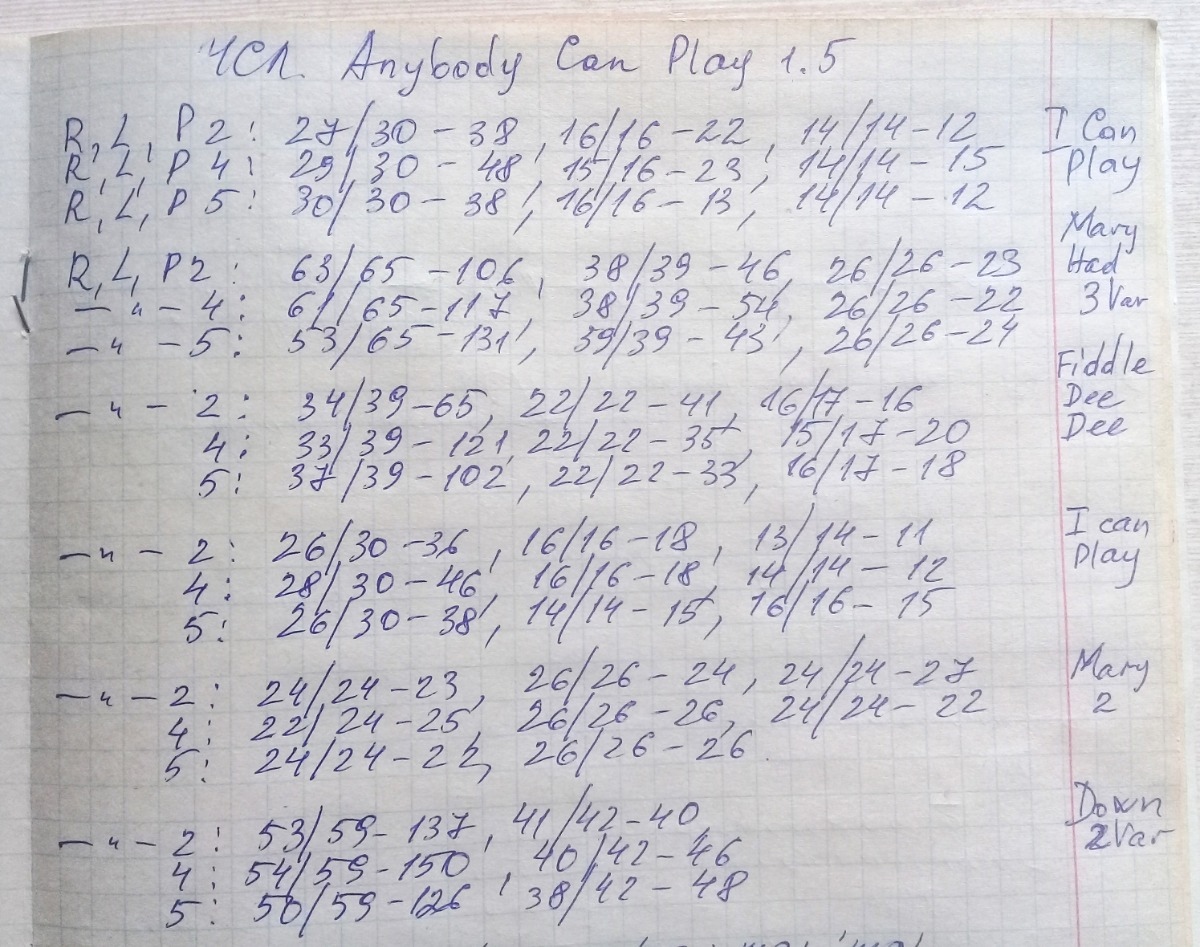 ЧСЛ. Anybody Can Play 1.5
R, L, P 2: 27/30 - 38, 16/16 - 22, 14/14 - 12 I Can
R, L, P 4: 29/30 - 48, 15/16 - 23, 14/14 - 15 Play
R, L, P 5: 30/30 - 38, 16/16 - 13, 14/14 - 12
Mary
R, L, P2: 63/65 - 106, 38/39 - 46, 26/26 - 23 Had
—"— 4: 61/65 - 117, 38/39 - 54, 26/26 - 22 3 Var
—"— 5: 53/65 - 131, 39/39 - 43, 26/26 - 24
Fiddle
—"— 2: 34/39 - 65, 22/22 - 41, 16/17 - 16 Dee
4: 33/39 - 121, 22/22 - 35, 15/17 - 20 Dee
5: 37/39 - 102, 22/22 - 33, 16/17 - 18
I can
—"— 2: 26/30 - 36, 16/16 - 18, 13/14 - 11 Play
4: 28/30 - 46, 16/16 - 18, 14/14 - 12
5: 26/30 - 38, 14/14 - 15, 16/16 - 15
—"— 2: 24/24 - 23, 26/26 - 24, 24/24 - 27 Mary
4: 22/24 - 25, 26/26 - 26, 24/24 - 22 2
5: 24/24 - 22, 26/26 - 26
Down
—"— 2: 53/59 - 137, 41/42 - 40, 2 Var
4: 54/59 - 150, 40/42 - 46
5: 50/59 - 126 38/42 - 48